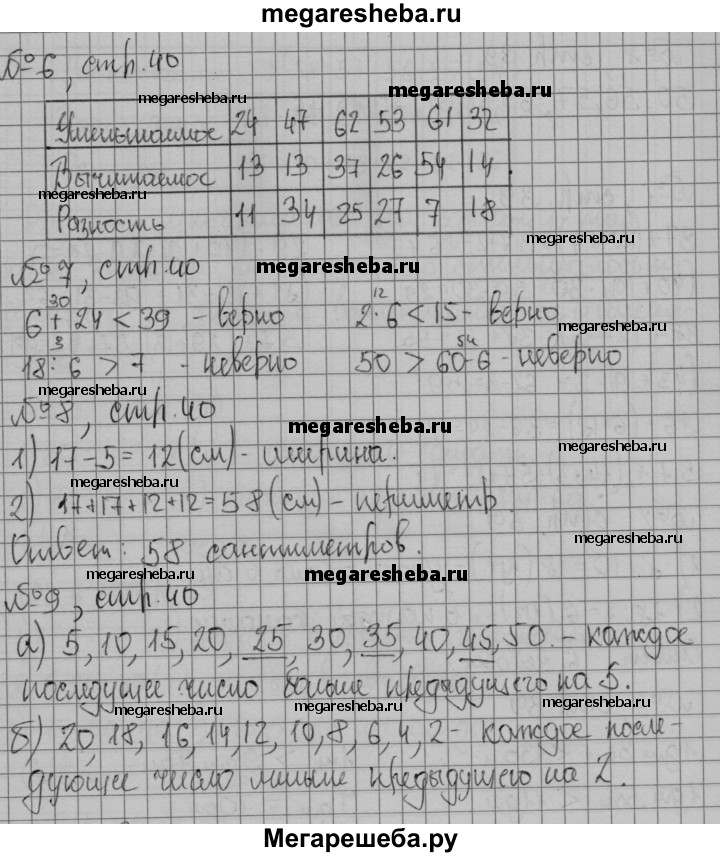 megaresheba.ru
№6, стр. 40
megaresheba.ru
megaresheba.ru
Уменьшаемое 24 47 62 53 61 32
Вычитаемое 13 13 37 26 54 14
megaresheba.ru
Разность 11 34 25 27 7 18
megaresheba.ru
№7, стр. 40
megaresheba.ru
30 12
6 + 24 < 39 - верно 2·6 < 15 - верно
megaresheba.ru
3 54
18 : 6 > 7 - неверно 50 > 60-6 - неверно
megaresheba.ru
№8, стр. 40
megaresheba.ru
megaresheba.ru
1) 17-5=12(см) - ширина.
megaresheba.ru
2) 17+17+12+12=58(см) - периметр.
megaresheba.ru
Ответ: 58 сантиметров.
megaresheba.ru
megaresheba.ru
megaresheba.ru
№9, стр. 40
а) 5, 10, 15, 20, 25, 30, 35, 40, 45, 50. - каждое
megaresheba.ru
последущее число больше предыдущего на 5.
megaresheba.ru
megaresheba.ru
megaresheba.ru
б) 20, 18, 16, 14, 12, 10, 8, 6, 4, 2 - каждое после-
дующее число меньше предыдущего на 2.
Мегарешеба.ру